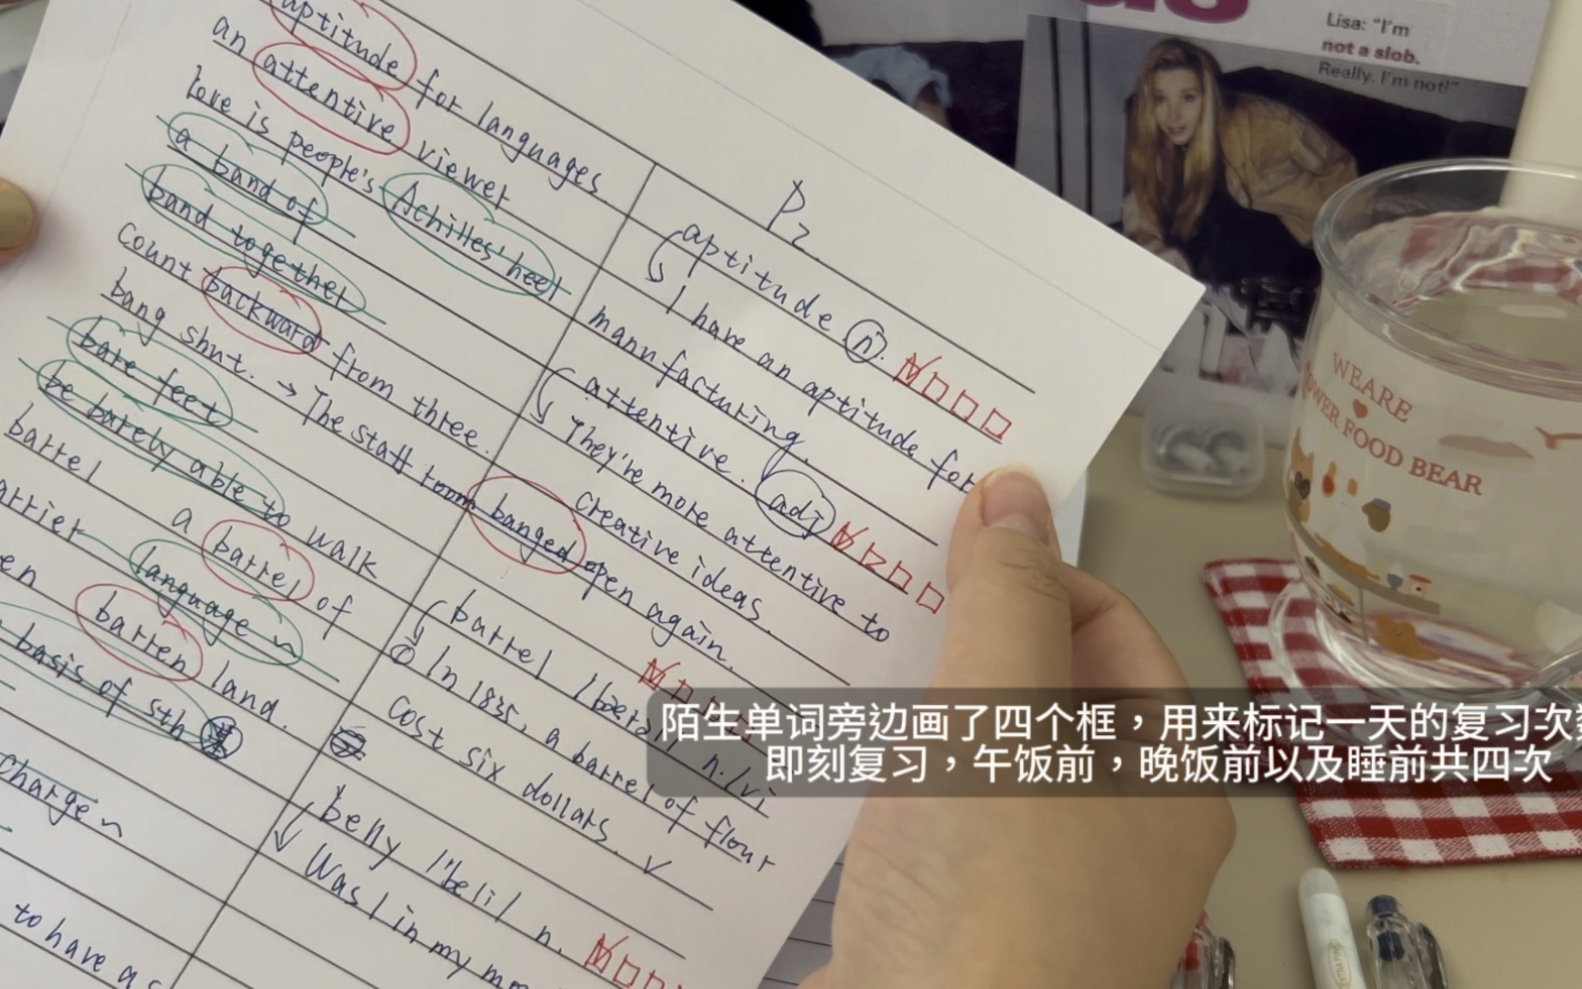 aptitude for languages.
an attentive viewer
love is people's Achilles' heel
a band of
band together
count backward from three.
bang shut. → The staff room banged open again.
bare feet
be barely able to walk
barrel a barrel of
language
barren land.
basis of sth
charge
to have a
P2.
aptitude n.
I have an aptitude for
manufacturing.
attentive. adj
They're more attentive to
creative ideas.
barrel n./vi
① In 1835, a barrel of flour
cost six dollars. √
belly n.
Was I in my
Lisa: "I'm
not a slob.
Really. I'm not!"
WEARE
FOOD BEAR
陌生单词旁边画了四个框，用来标记一天的复习次
即刻复习，午饭前，晚饭前以及睡前共四次